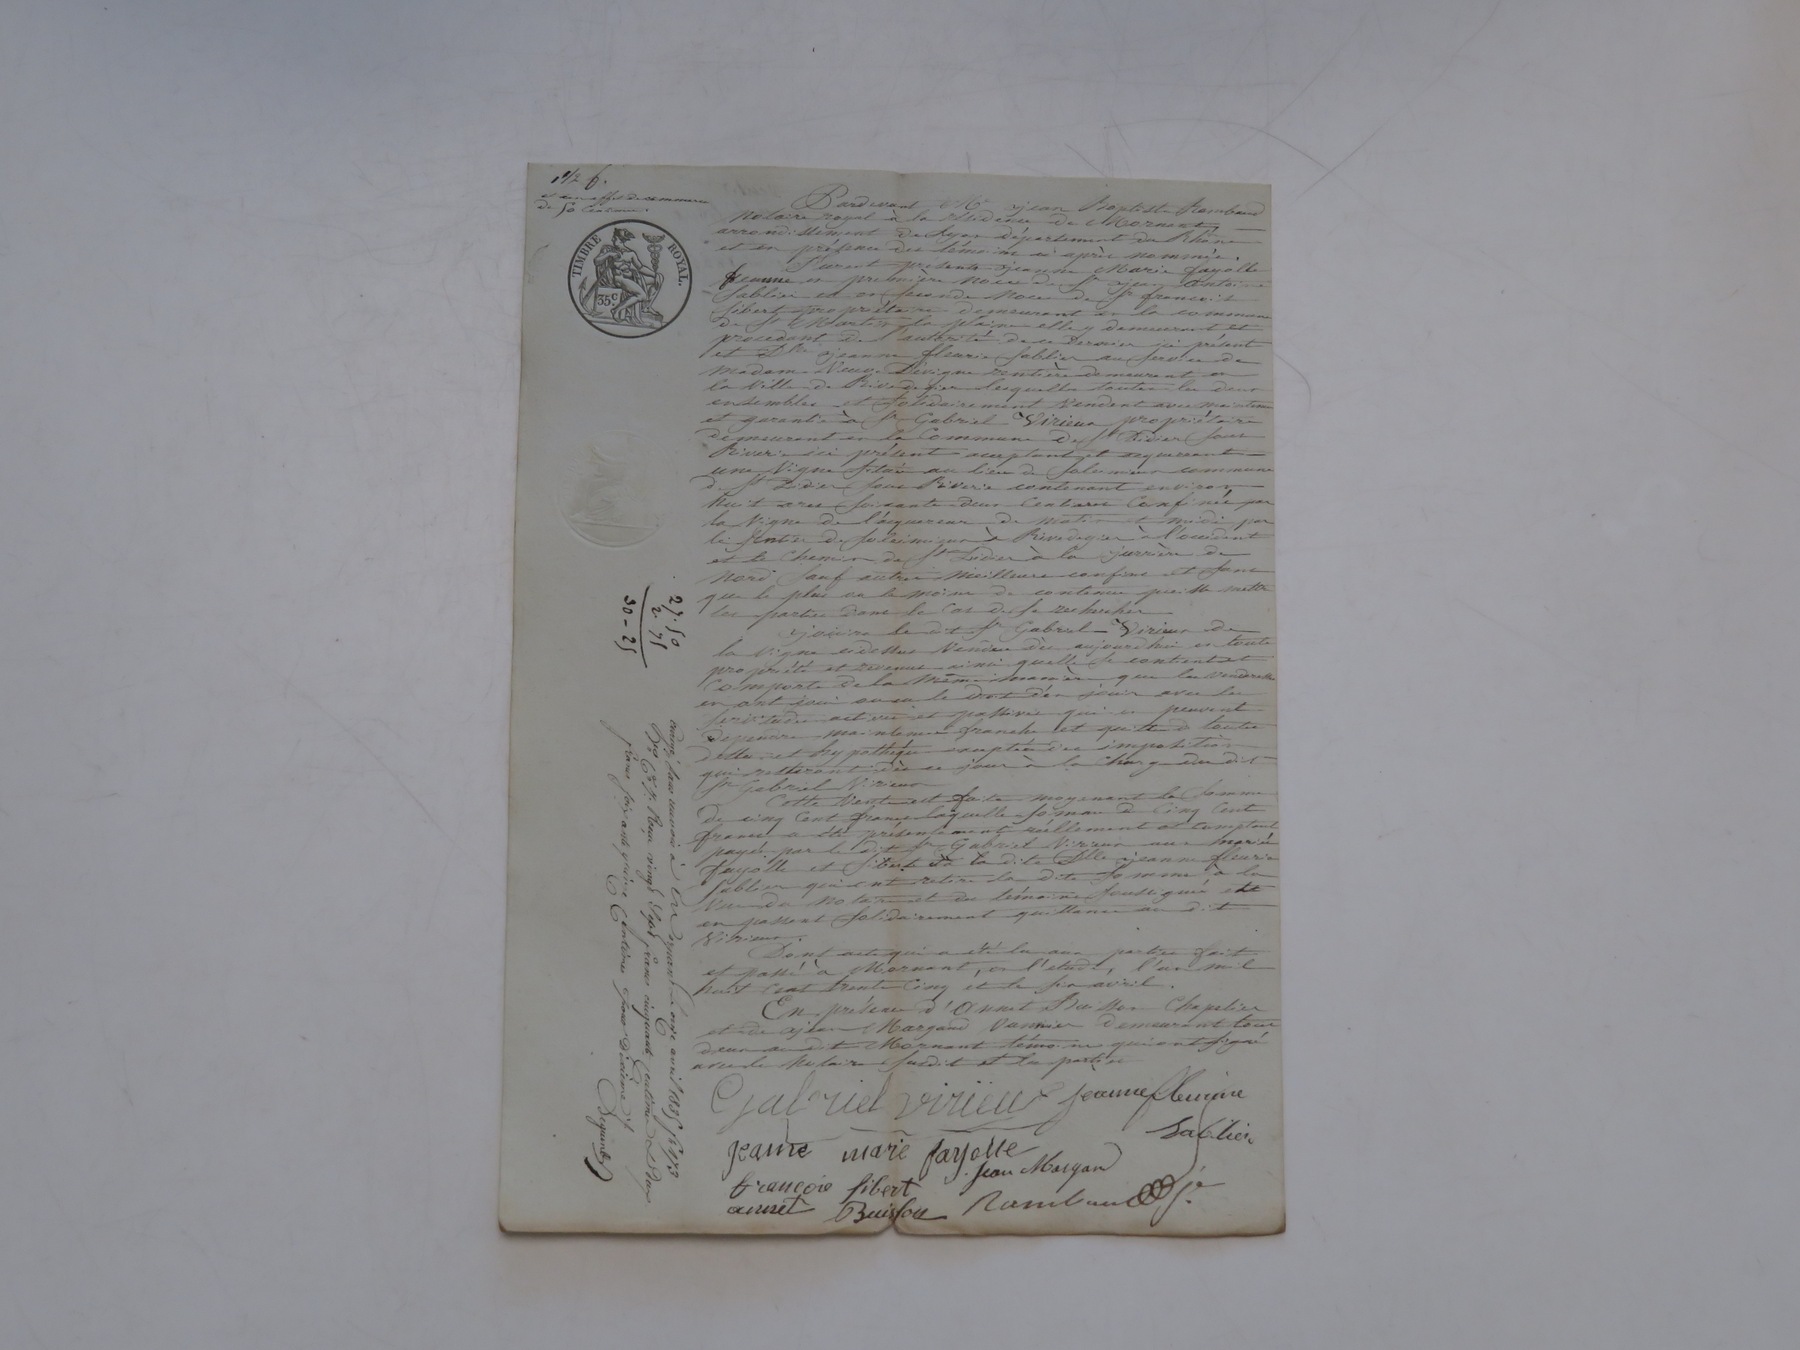 1/2 6.
de 50 centimes.
TIMBRE ROYAL.
35c
Pardevant Me jean Baptiste Rambaud
Notaire royal à la résidence de Mornant,
arrondissement de Lyon département du Rhône
et en présence des témoins ci après nommés.
Furent présents jeanne Marie fayolle
femme en première Noce de Sr jean Antoine
Sablier et en seconde Noce de Sr françois
fibert propriétaire demeurant en la commune
de St Martin la plaine elle y demeurant et
procedant de l'autorité de ce Dernier ici présent
et Dlle jeanne fleurie Sablier au Service de
Madame Veuve Devigne rentière demeurant en
la Ville de Rivedegier lesquelles toutes les deux
ensembles et Solidairement Vendent avec maintenue
et garantie à Sr Gabriel Virieux propriétaire
demeurant en la Commune de St Didier Sous
Riverie ici présent aceptant et aquerrant
une Vigne Située au lieu de commune
de St Didier Sous Riverie contenant environ
huit ares Soixante deux Centiares Confinée par
la Vigne de l'aquereur de Matin et midi par
le Sentier de à Rivedegier à l'occident
et le Chemin de St Didier à la de
Nord Sauf autres Meilleurs confins et Sans
que le plus ou le moins de contenue puisse mettre
les parties dans le Cas de Se rechercher
jouira le dit Sr Gabriel Virieux de
la Vigne ci dessus Vendue dès aujourdhui en toute
propriété et revenus ainsi quelle Se contient et
Comporte de la Même manière que les Venderesses
en ont joui ou eu le Droit d'en jouir avec les
Servitudes actives et passives qui en peuvent
dépendre maintenue franche et quitte de toutes
dettes et hypothèques exceptés des impositions
qui resteront dès ce jour à la Charge du dit
Sr Gabriel Virieux
Cette Vente est faite moyenant la Somme
de cinq Cent francs laquelle Somme de Cinq Cent
francs a été présentement réellement et comptant
payée par le dit Sr Gabriel Virieux aux mariés
fayolle et fibert et à la dite Dlle jeanne fleurie
Sablier qui ont retiré la dite Somme à la
Vue du Notaire et des témoins Soussignés et
en passent Solidairement quittance au dit
Virieux.
Dont acte qui a été lu aux parties fait
et passé à Mornant, en l'étude, l'an mil
huit cent trente Cinq et le Six avril.
En présence d'Annet Buisson Chapelier
et de jean Margand Vannier demeurant tous
deux au dit Mornant témoins qui ont Signé
avec le Notaire Susdit et les parties
Gabriel virieux jeanne fleurine
Sablier
jeanne marie fayolle
jean Margand
françois fibert
annet Buisson Rambaud
27. 50
2 75
30 - 25
onze avril 1835 fo 173
Reçu vingt Sept francs cinquante centimes
francs Soixante quinze Centimes pour Décime